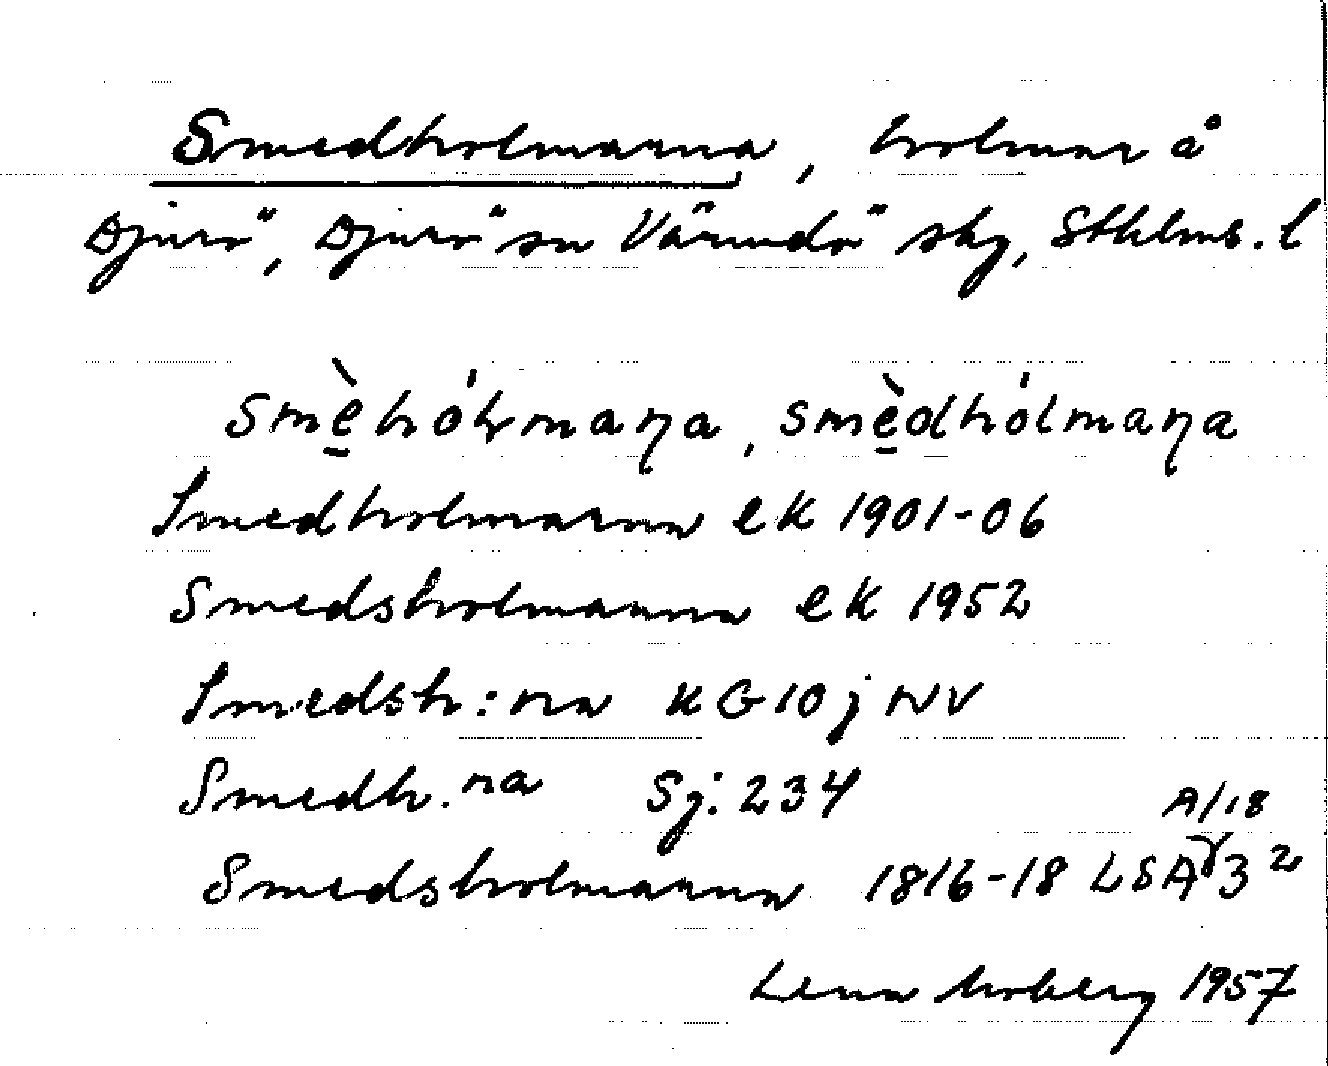 Smedholmarna, holmar å
Djurö, Djurö sn Värmdö skg, Sthlms. l
smè̱hólmaɳa, smè̱dhólmaɳa
Smedholmarna ek 1901-06
Smedsholmarna ek 1952
Smedsh:na KG 10 j NV
Smedh.na Sj: 234
A/18
Smedsholmarna 1816-18 LSA 3²
Lena Moberg 1957